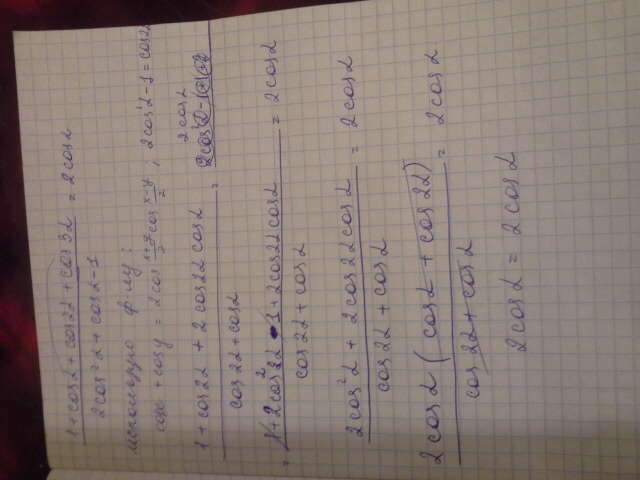 1 + cos α + cos 2α + cos 3α / 2cos² α + cos α - 1 = 2 cos α
использую ф-лу:
cos x + cos y = 2 cos (x+y)/2 cos (x-y)/2 ; 2cos² α - 1 = cos 2α
1 + cos 2α + 2 cos 2α cos α / cos 2α + cos α =
2 cos α
= 1 + 2cos² α - 1 + 2cos 2α cos α / cos 2α + cos α = 2 cos α
2cos² α + 2cos 2α cos α / cos 2α + cos α = 2 cos α
2 cos α ( cos α + cos 2α) / cos 2α + cos α = 2 cos α
2 cos α = 2 cos α